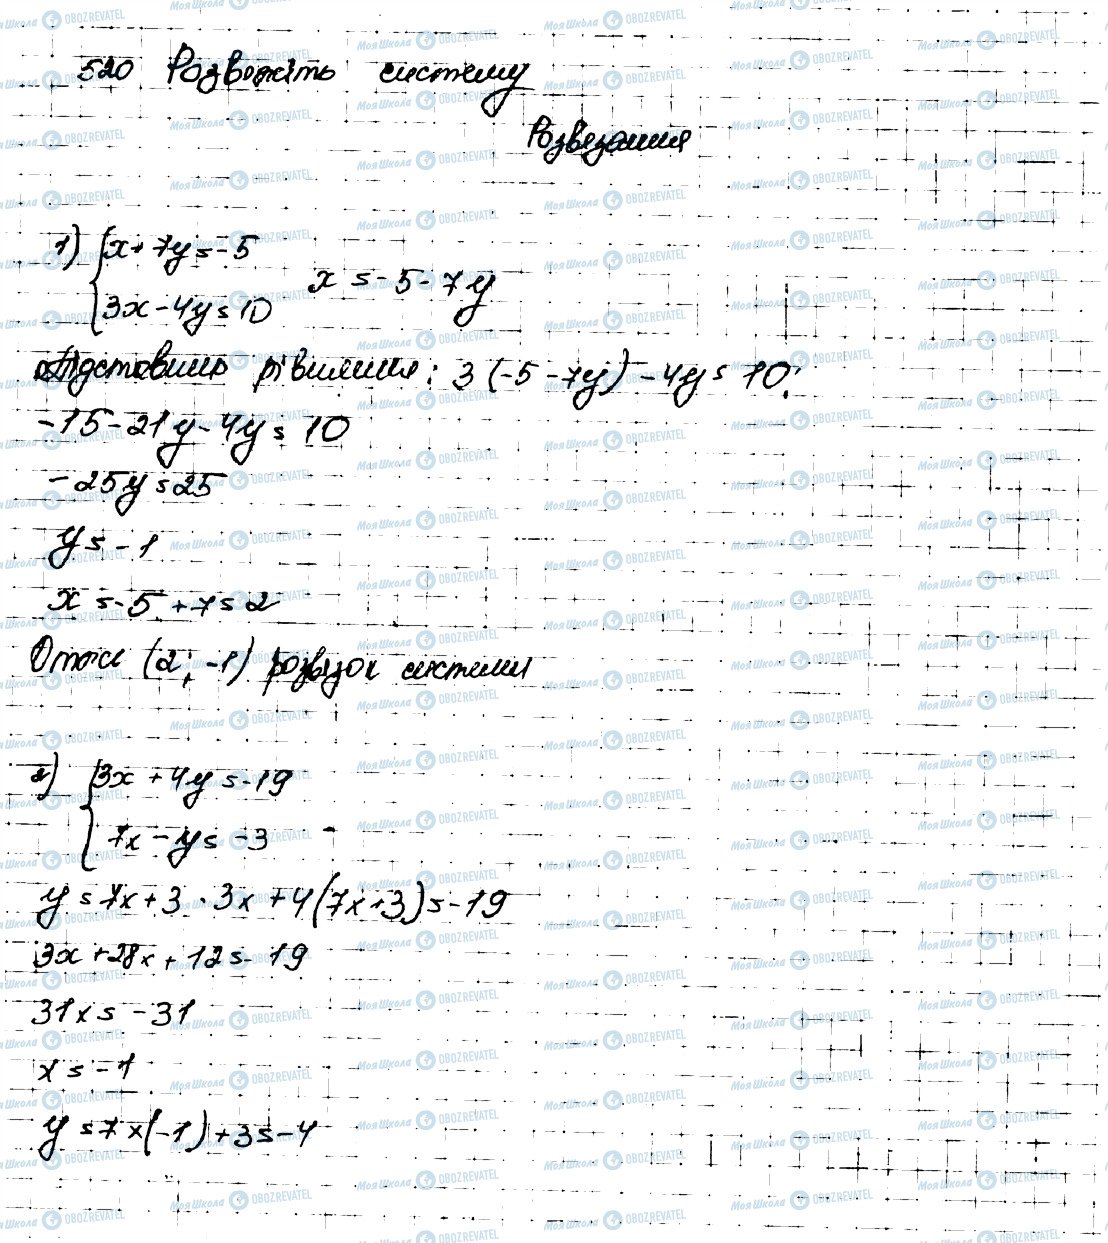 520 Розвяжіть систему
Розвязання
1) { x + 7y = -5
3x - 4y = 10
x = -5 - 7y
Підставимо рівняння: 3(-5 - 7y) - 4y = 10;
-15 - 21y - 4y = 10
-25y = 25
y = -1
x = -5 + 7 = 2
Отже (2; -1) розвязок системи
2) { 3x + 4y = -19
7x - y = -3
y = 7x + 3 · 3x + 4(7x + 3) = -19
3x + 28x + 12 = -19
31x = -31
x = -1
y = 7 × (-1) + 3 = -4
Моя Школа OBOZREVATEL